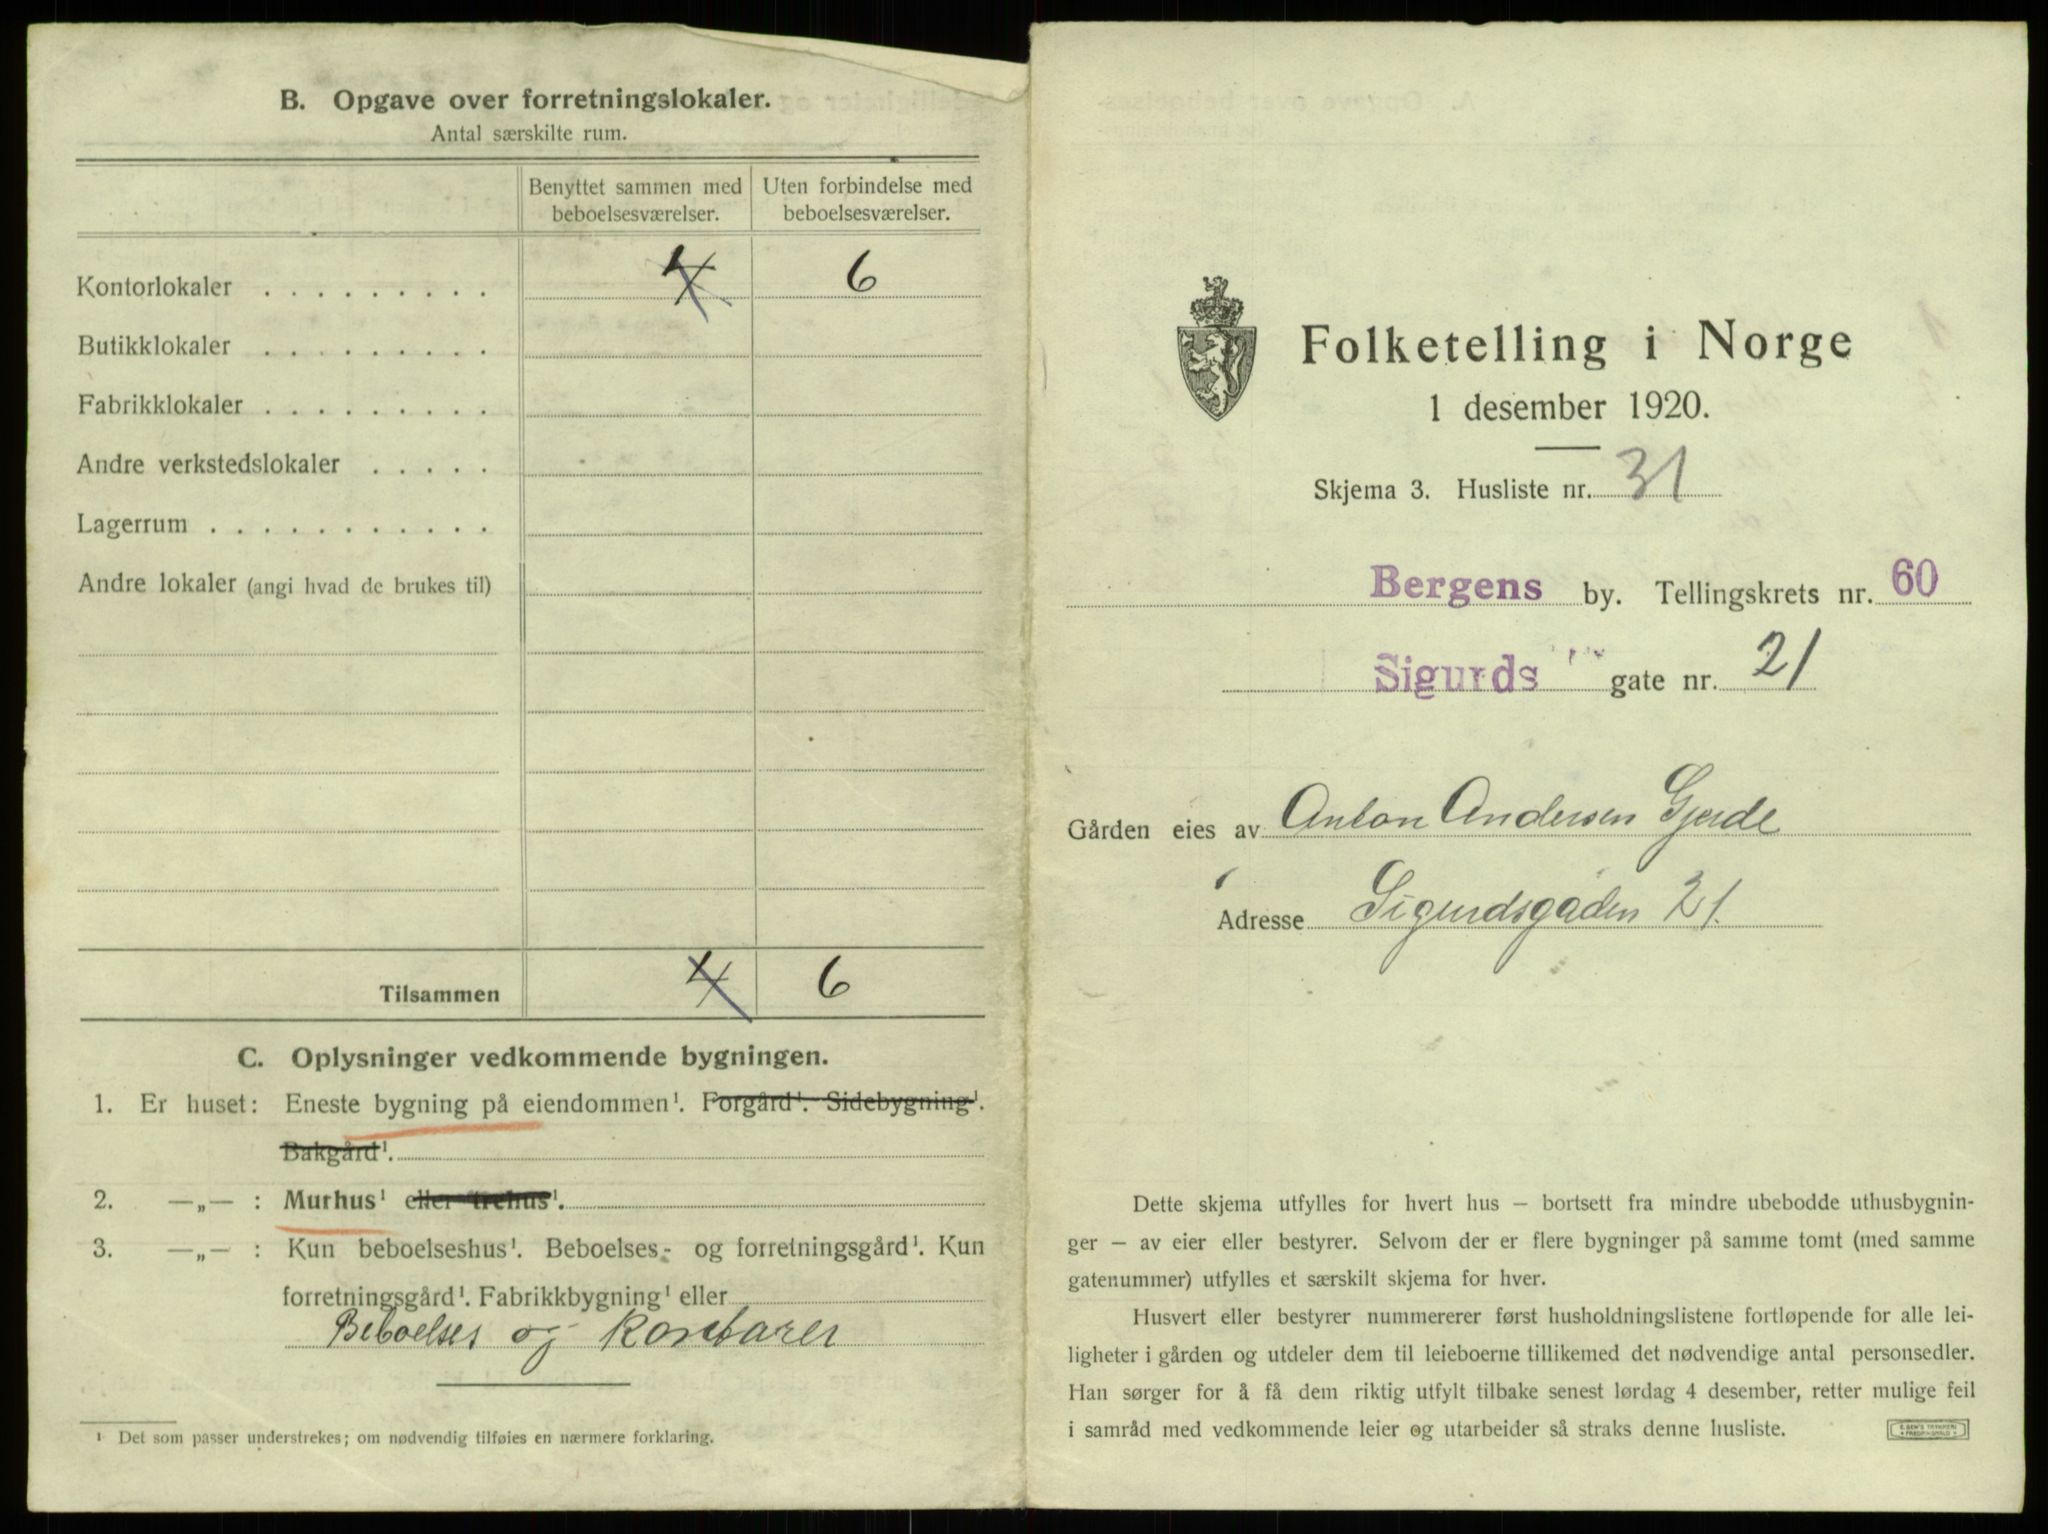 B. Opgave over forretningslokaler.
Antal særskilte rum.
Benyttet sammen med beboelsesværelser.
Uten forbindelse med beboelsesværelser.
Kontorlokaler . . . . . . . . . 4 6
Butikklokaler . . . . . . . . .
Fabrikklokaler . . . . . . . . .
Andre verkstedslokaler . . . . .
Lagerrum . . . . . . . . . . . .
Andre lokaler (angi hvad de brukes til)
Tilsammen 4 6
C. Oplysninger vedkommende bygningen.
1. Er huset: Eneste bygning på eiendommen¹. Forgård¹. Sidebygning¹.
Bakgård¹.
2. —„— : Murhus¹ eller trehus¹.
3. —„— : Kun beboelseshus¹. Beboelses- og forretningsgård¹. Kun
forretningsgård¹. Fabrikkbygning¹ eller
Beboelses og Kontorer
¹ Det som passer understrekes; om nødvendig tilføies en nærmere forklaring.
Folketelling i Norge
1 desember 1920.
Skjema 3. Husliste nr. 31
Bergens by. Tellingskrets nr. 60
Sigurds gate nr. 21
Gården eies av Anton Andersen Gjerde
Adresse Sigurdsgaden 21.
Dette skjema utfylles for hvert hus — bortsett fra mindre ubebodde uthusbygnin-
ger — av eier eller bestyrer. Selvom der er flere bygninger på samme tomt (med samme
gatenummer) utfylles et særskilt skjema for hver.
Husvert eller bestyrer nummererer først husholdningslistene fortløpende for alle lei-
ligheter i gården og utdeler dem til leieboerne tillikemed det nødvendige antal personsedler.
Han sørger for å få dem riktig utfylt tilbake senest lørdag 4 desember, retter mulige feil
i samråd med vedkommende leier og utarbeider så straks denne husliste.